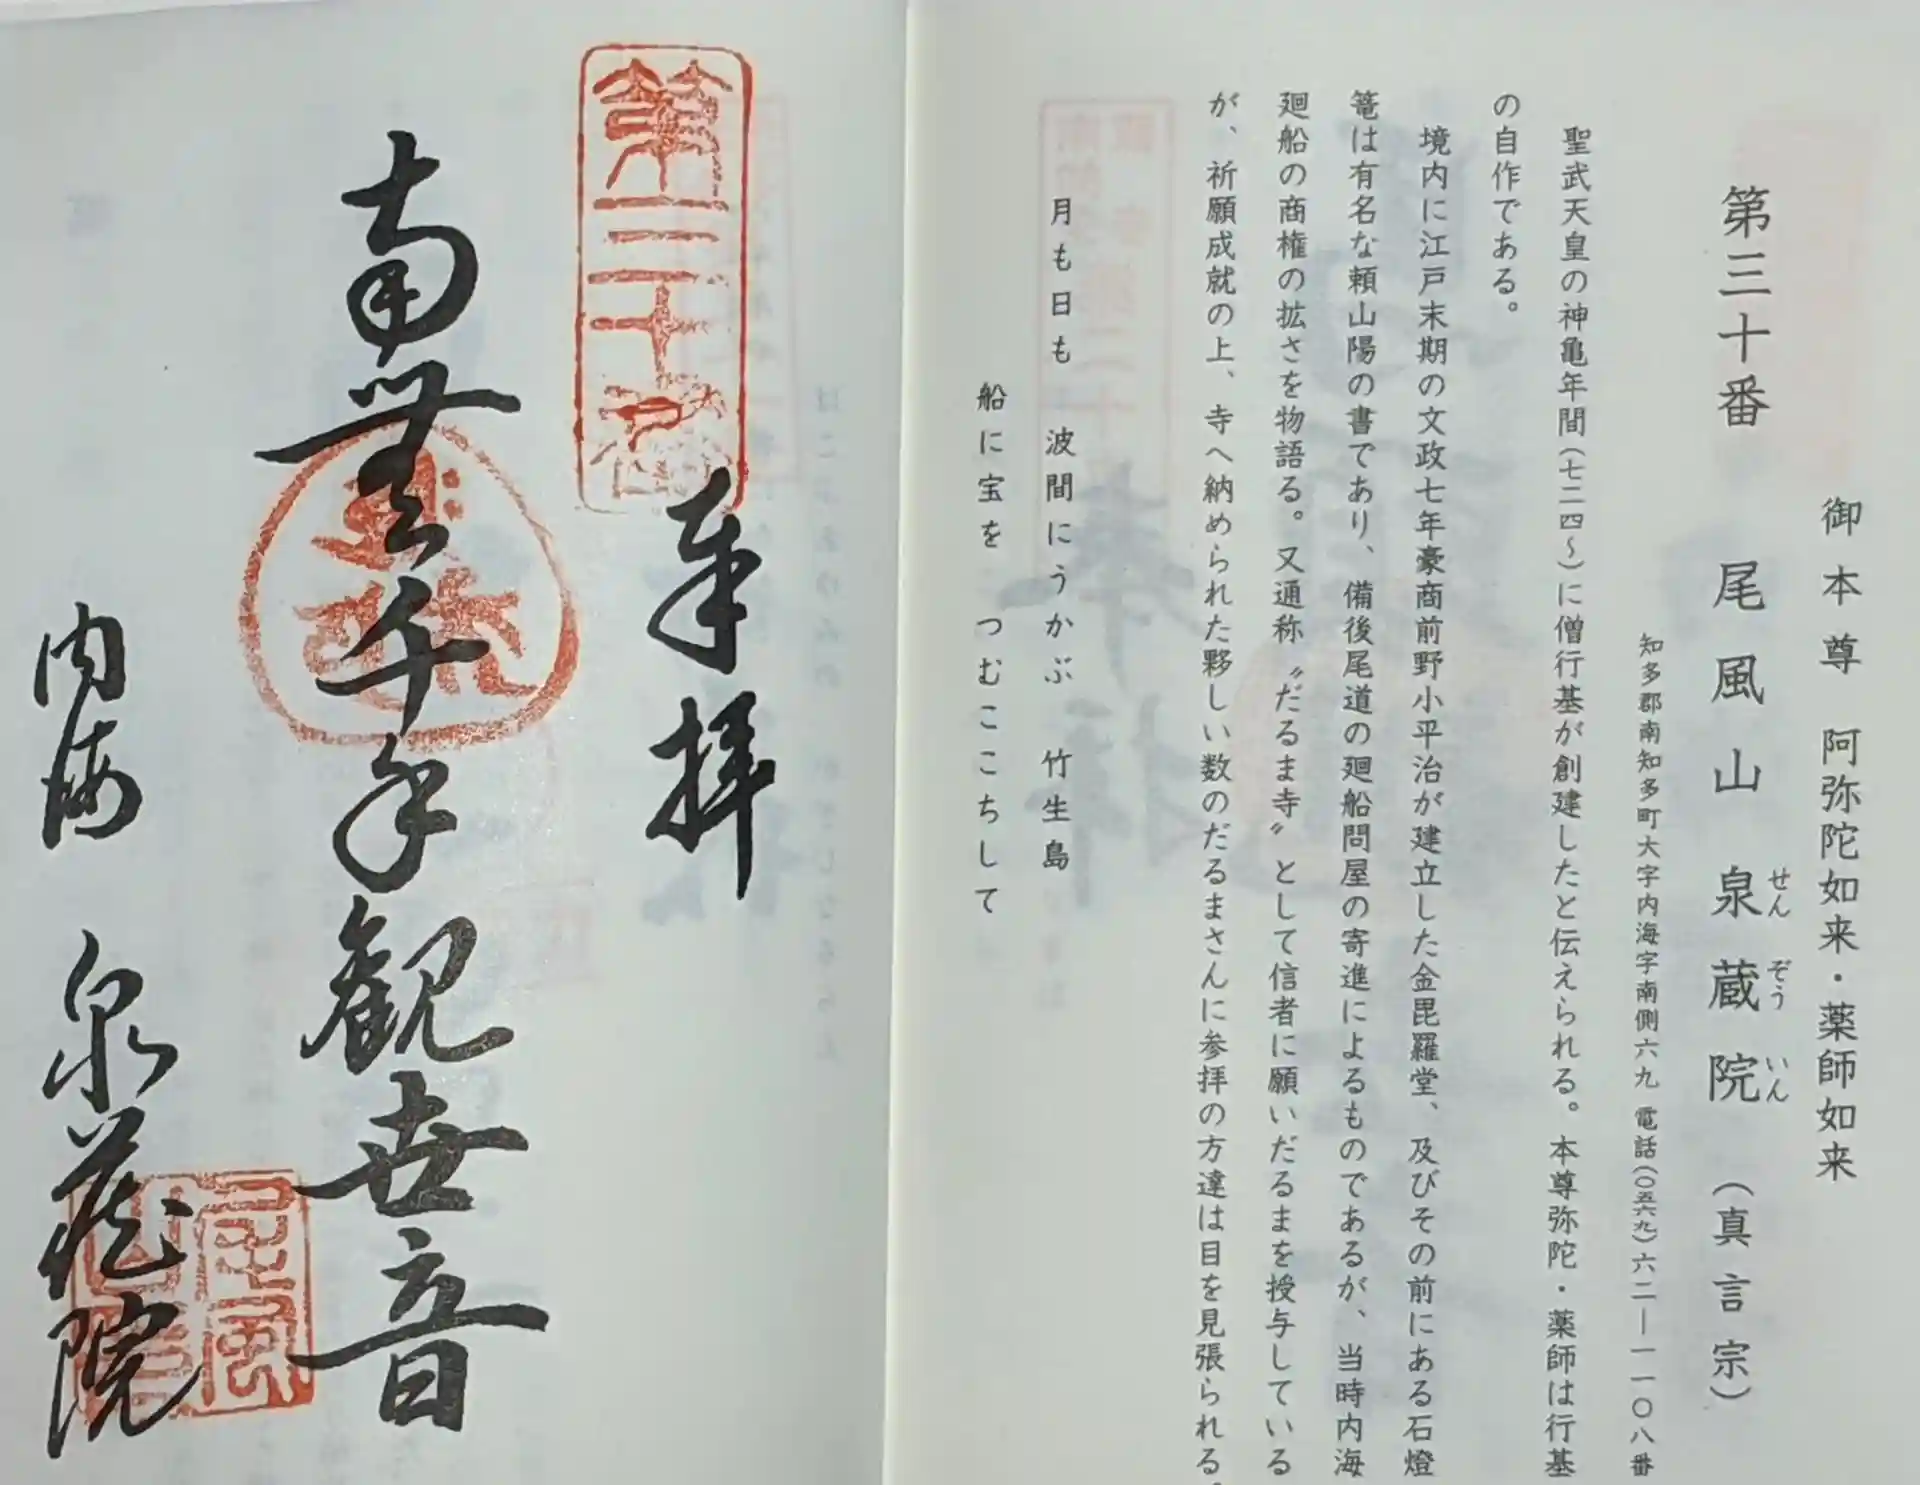 御本尊 阿弥陀如来・薬師如来
第三十番 尾風山 泉蔵院（真言宗）
せん ぞう いん
知多郡南知多町大字内海字南側六九 電話(〇五六九)六二―一一〇八番
聖武天皇の神亀年間(七二四～)に僧行基が創建したと伝えられる。本尊弥陀・薬師は行基
の自作である。
境内に江戸末期の文政七年豪商前野小平治が建立した金毘羅堂、及びその前にある石燈
篭は有名な頼山陽の書であり、備後尾道の廻船問屋の寄進によるものであるが、当時内海
廻船の商権の拡さを物語る。又通称〝だるま寺〟として信者に願いだるまを授与している
が、祈願成就の上、寺へ納められた夥しい数のだるまさんに参拝の方達は目を見張られる。
月も日も 波間にうかぶ 竹生島
船に宝を つむここちして
奉拝
南無千手観世音
内海 泉蔵院